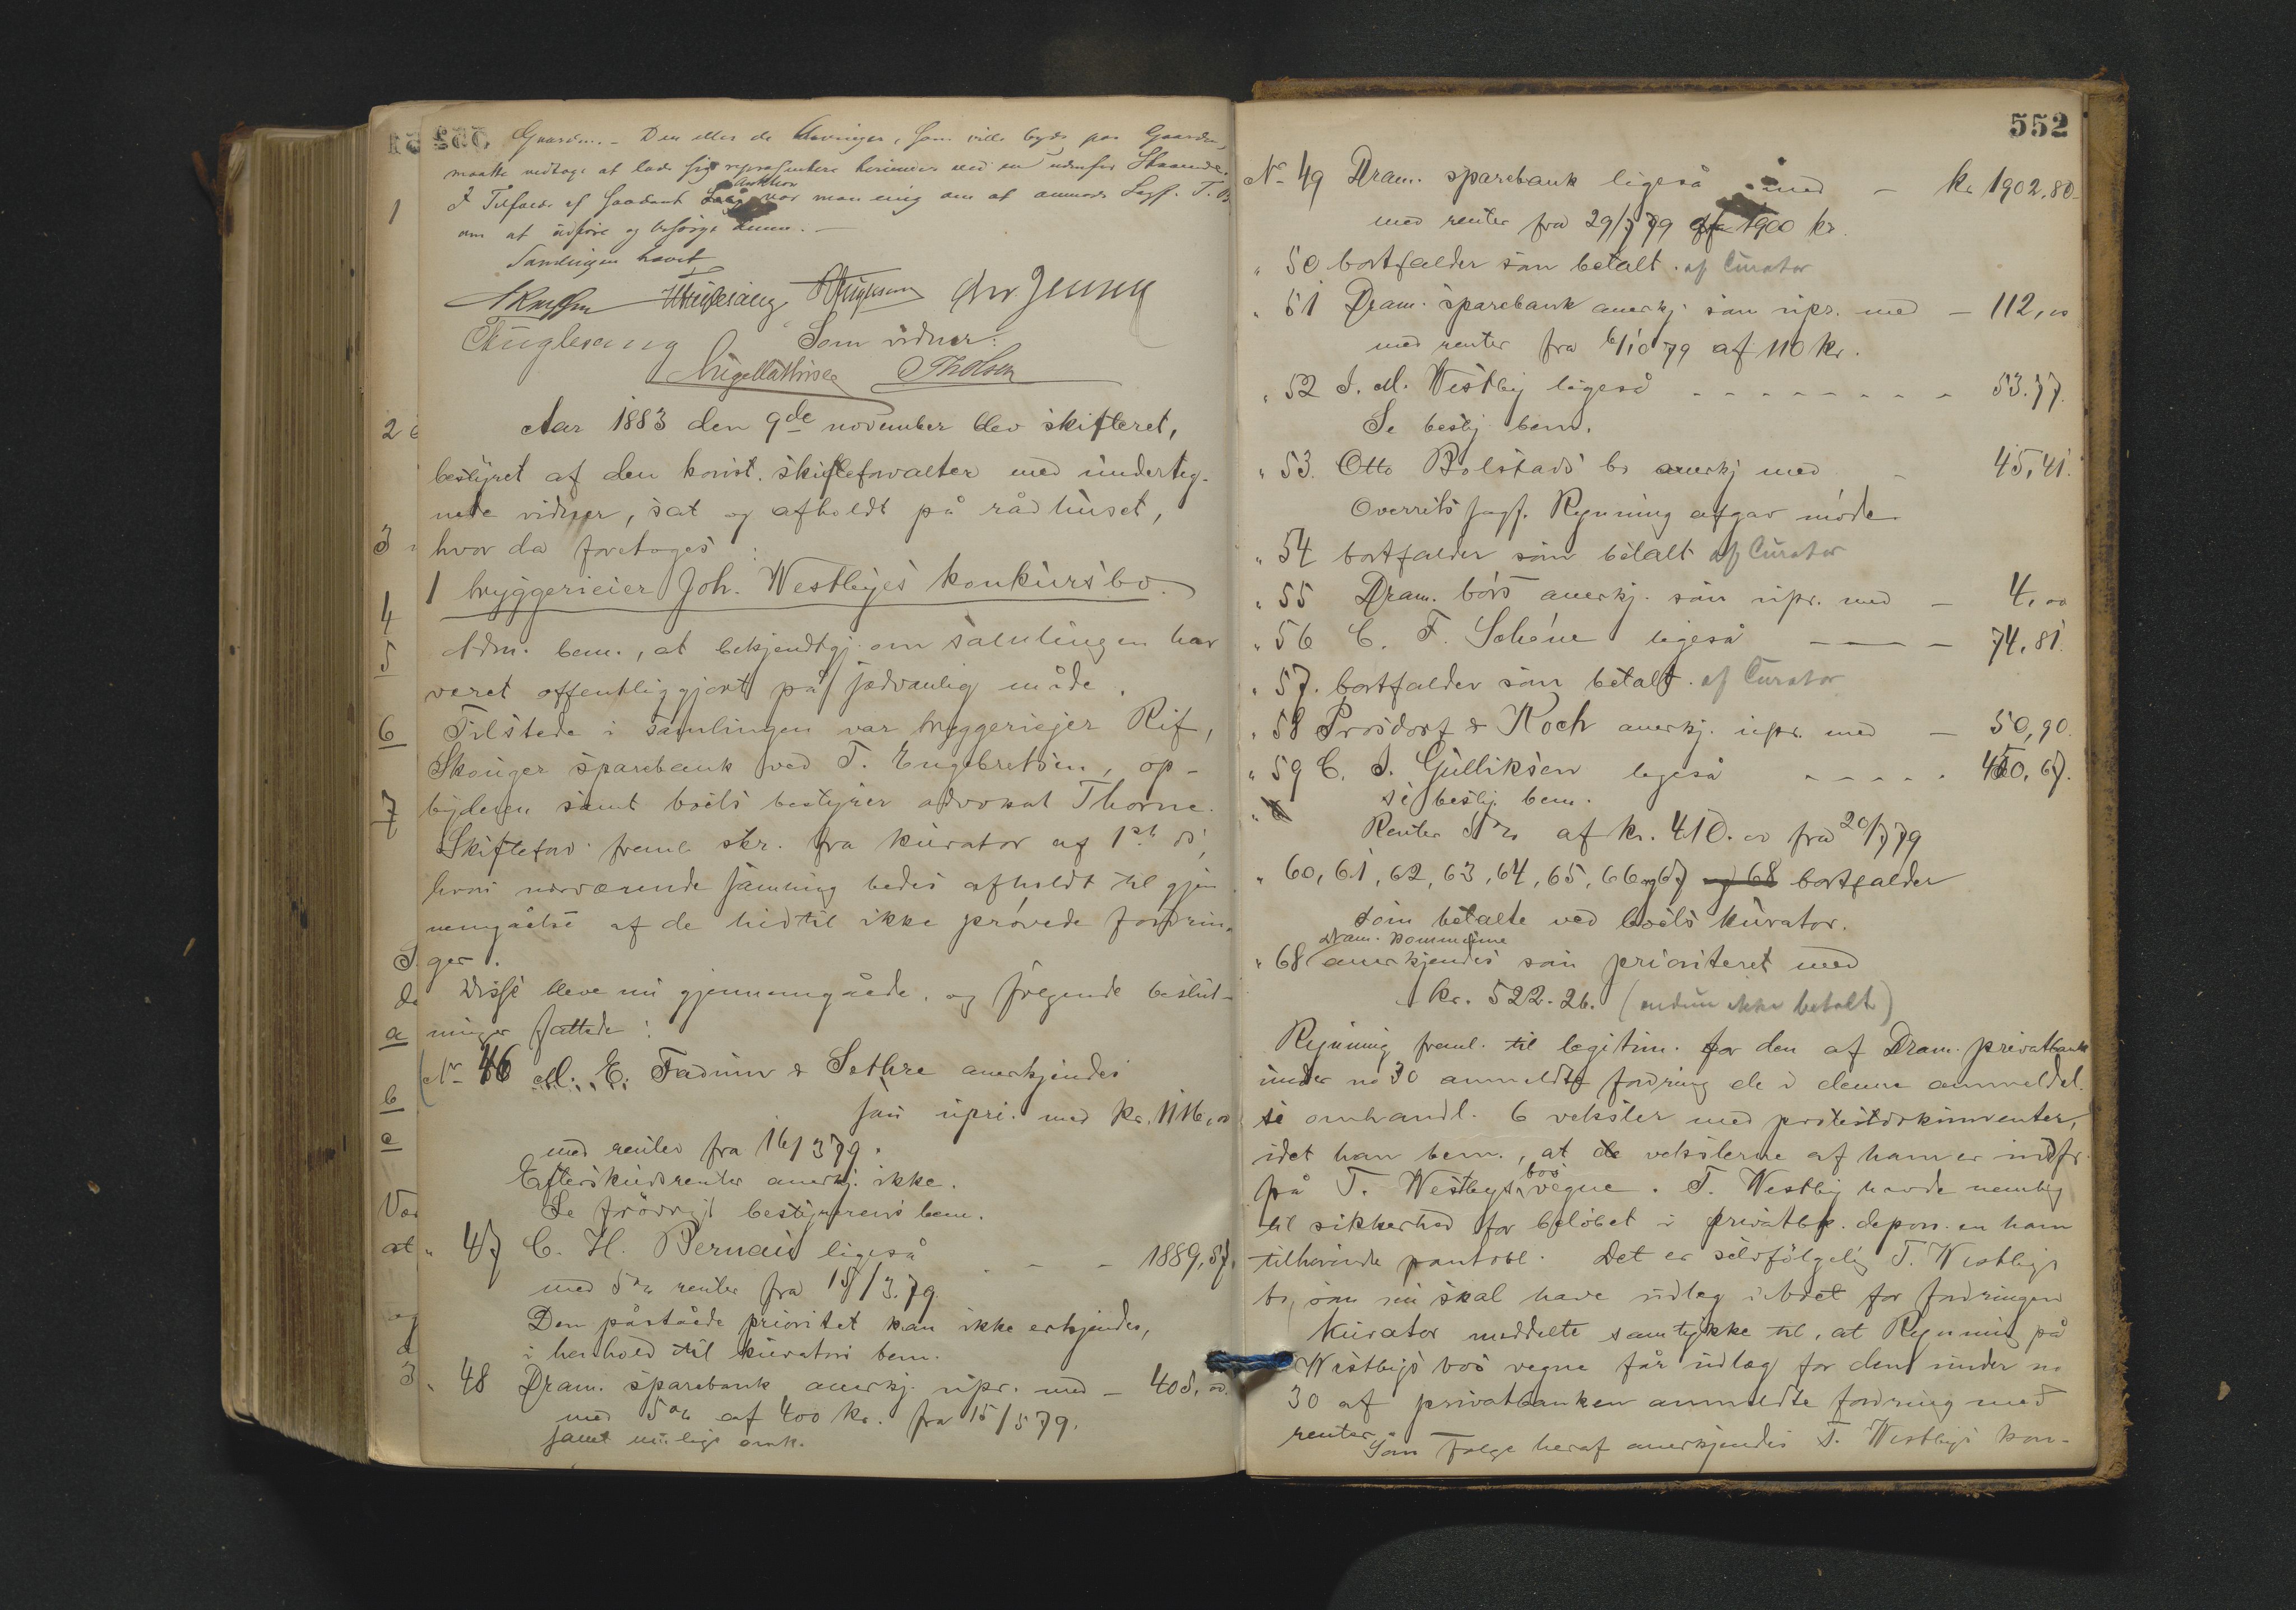 Gaarden. – Den eller de Arvinger, som ville byde paa Gaarden,
maatte vedtage at lade sig repræsentere herinder ved en udenfor Staaende.
I Tilfælde af saadant Auktion var man enig om at anmode Sagf. T.
om at udføre og besørge denne. –
Samlingen hævet
Som vidner:
Aar 1883 den 9de november blev skifteret,
bestyret af den konst. skifteforvalter med underteg-
nede vidner, sat og afholdt på rådhuset,
hvor da foretoges:
1 bryggerieier Joh. Westbyes konkursbo.
Adm. bem., at bekjendtgj. om samlingen har
været offentliggjort på sædvanlig måde.
Tilstede i samlingen var bryggeriejer Rif,
Skouger sparebank ved T. Engebretsen, op-
byderen samt boets bestyrer advokat Thorne.
Skifteforv. freml. skr. fra kurator af 1ste ds,
hvori nærværende samling bedes afholdt til gjen
nemgåelse af de hidtil ikke prøvede fordrin
ger.
Disse bleve nu gjennemgåede, og følgende beslut-
ninger fattede:
No 46 M. E. Fadum & Sethre anerkjendes
som upri. med kr. 1116,00
med renter fra 16/3 79.
Efterskudsrenter anerkj. ikke.
Se forøvrigt bestyrerens bem.
" 47 C. H. Bernais ligeså - - - 1889,57.
med 5% renter fra 15/3.79.
Den påståede prioritet kan ikke erkjendes,
i henhold til kurators bem.
" 48 Dram. sparebank anerkj. upr. med – 408,00.
med 5% af 400 kr. fra 15/5 79.
samt mulige omk.
552
No 49 Dram. sparebank ligeså med – kr 1902,80
med renter fra 29/7 79 af 1900 kr.
" 50 bortfalder som betalt. af Curator
" 51 Dram. sparebank anerkj. som upr. med – 112,00
med renter fra 6/10 79 af 110 kr.
" 52 J. M. Westby ligeså - - - - - - - - 53.77.
Se besty. bem.
" 53. Otto Bolstads bo anerkj med - 45,41.
Overrets sagf. Rynning afgav møde
" 54 bortfalder som betalt af Curator
" 55 Dram. børs anerkj. som upr. med – 4,00
" 56 C. F. Schéne ligeså — — – 74,81.
" 57. bortfalder som betalt. af Curator
" 58 Prosdorf & Koch anerkj. upr. med – 50,90.
" 59 C. J. Gulliksen ligeså - - - - - 450,67.
se besty. bem.
Renter 5% af kr. 410.00 fra 20/7 79
" 60, 61, 62, 63, 64, 65, 66 og 67 og 68 bortfalder
som betalte ved boets kurator.
Dram. kommune
" 68 anerkjendes som prioriteret med
kr. 522.26. (endnu ikke betalt)
Rynning freml. til legitim. for den af Dram. privatbank
under no 30 anmeldte fordring de i denne anmeldel
se omhandl. 6 veksler med protestdokumenter,
idet han bem., at de vekslerne af ham er indfr.
på T. Westbys bos vegne. T. Westby havde nemlig
til sikkerhed for beløbet i privatbk. depon. en ham
tilhørende pantobl. Det er selvfølgelig T. Westbys
bo, som nu skal have udlæg i boet for fordringen
Kurator meddelte samtykke til, at Rynning på
Westbys bos vegne får udlæg for den under no
30 af privatbanken anmeldte fordring med
renter
Som Følge heraf anerkjendes T. Westbys kon-